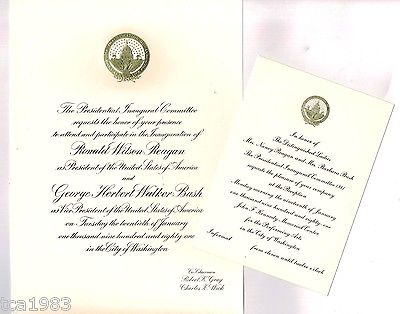 The Presidential Inaugural Committee
requests the honor of your presence
to attend and participate in the Inauguration of
Ronald Wilson Reagan
as President of the United States of America
and
George Herbert Walker Bush
as Vice President of the United States of America
on Tuesday the twentieth of January
one thousand nine hundred and eighty one
in the City of Washington
Co-Chairmen
Robert K. Gray
Charles Z. Wick
In honor of
The Distinguished Ladies
Mrs. Nancy Reagan and Mrs. Barbara Bush
The Presidential Inaugural Committee 1981
requests the pleasure of your company
at the Reception
Monday morning the nineteenth of January
one thousand nine hundred and eighty one
John F. Kennedy Memorial Center
for the Performing Arts
in the City of Washington
Informal
from eleven until twelve o'clock
tca1983